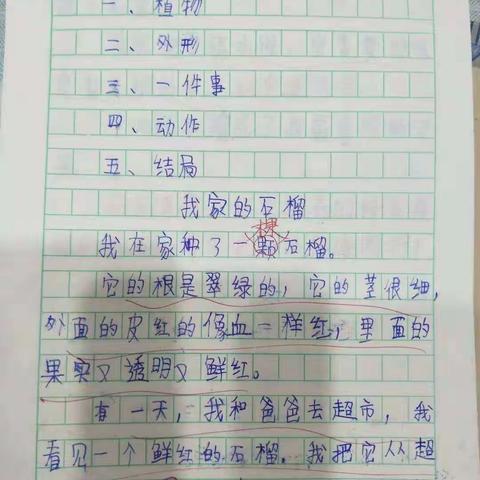 一、植物
二、外形
三、一件事
四、动作
五、结局
我家的石榴
棵
我在家种了一颗石榴。
它的根是翠绿的，它的茎很细，
外面的皮红的像血一样红，里面的
果实又透明又鲜红。
有一天，我和爸爸去超市，我
看见一个鲜红的石榴。我把它从超